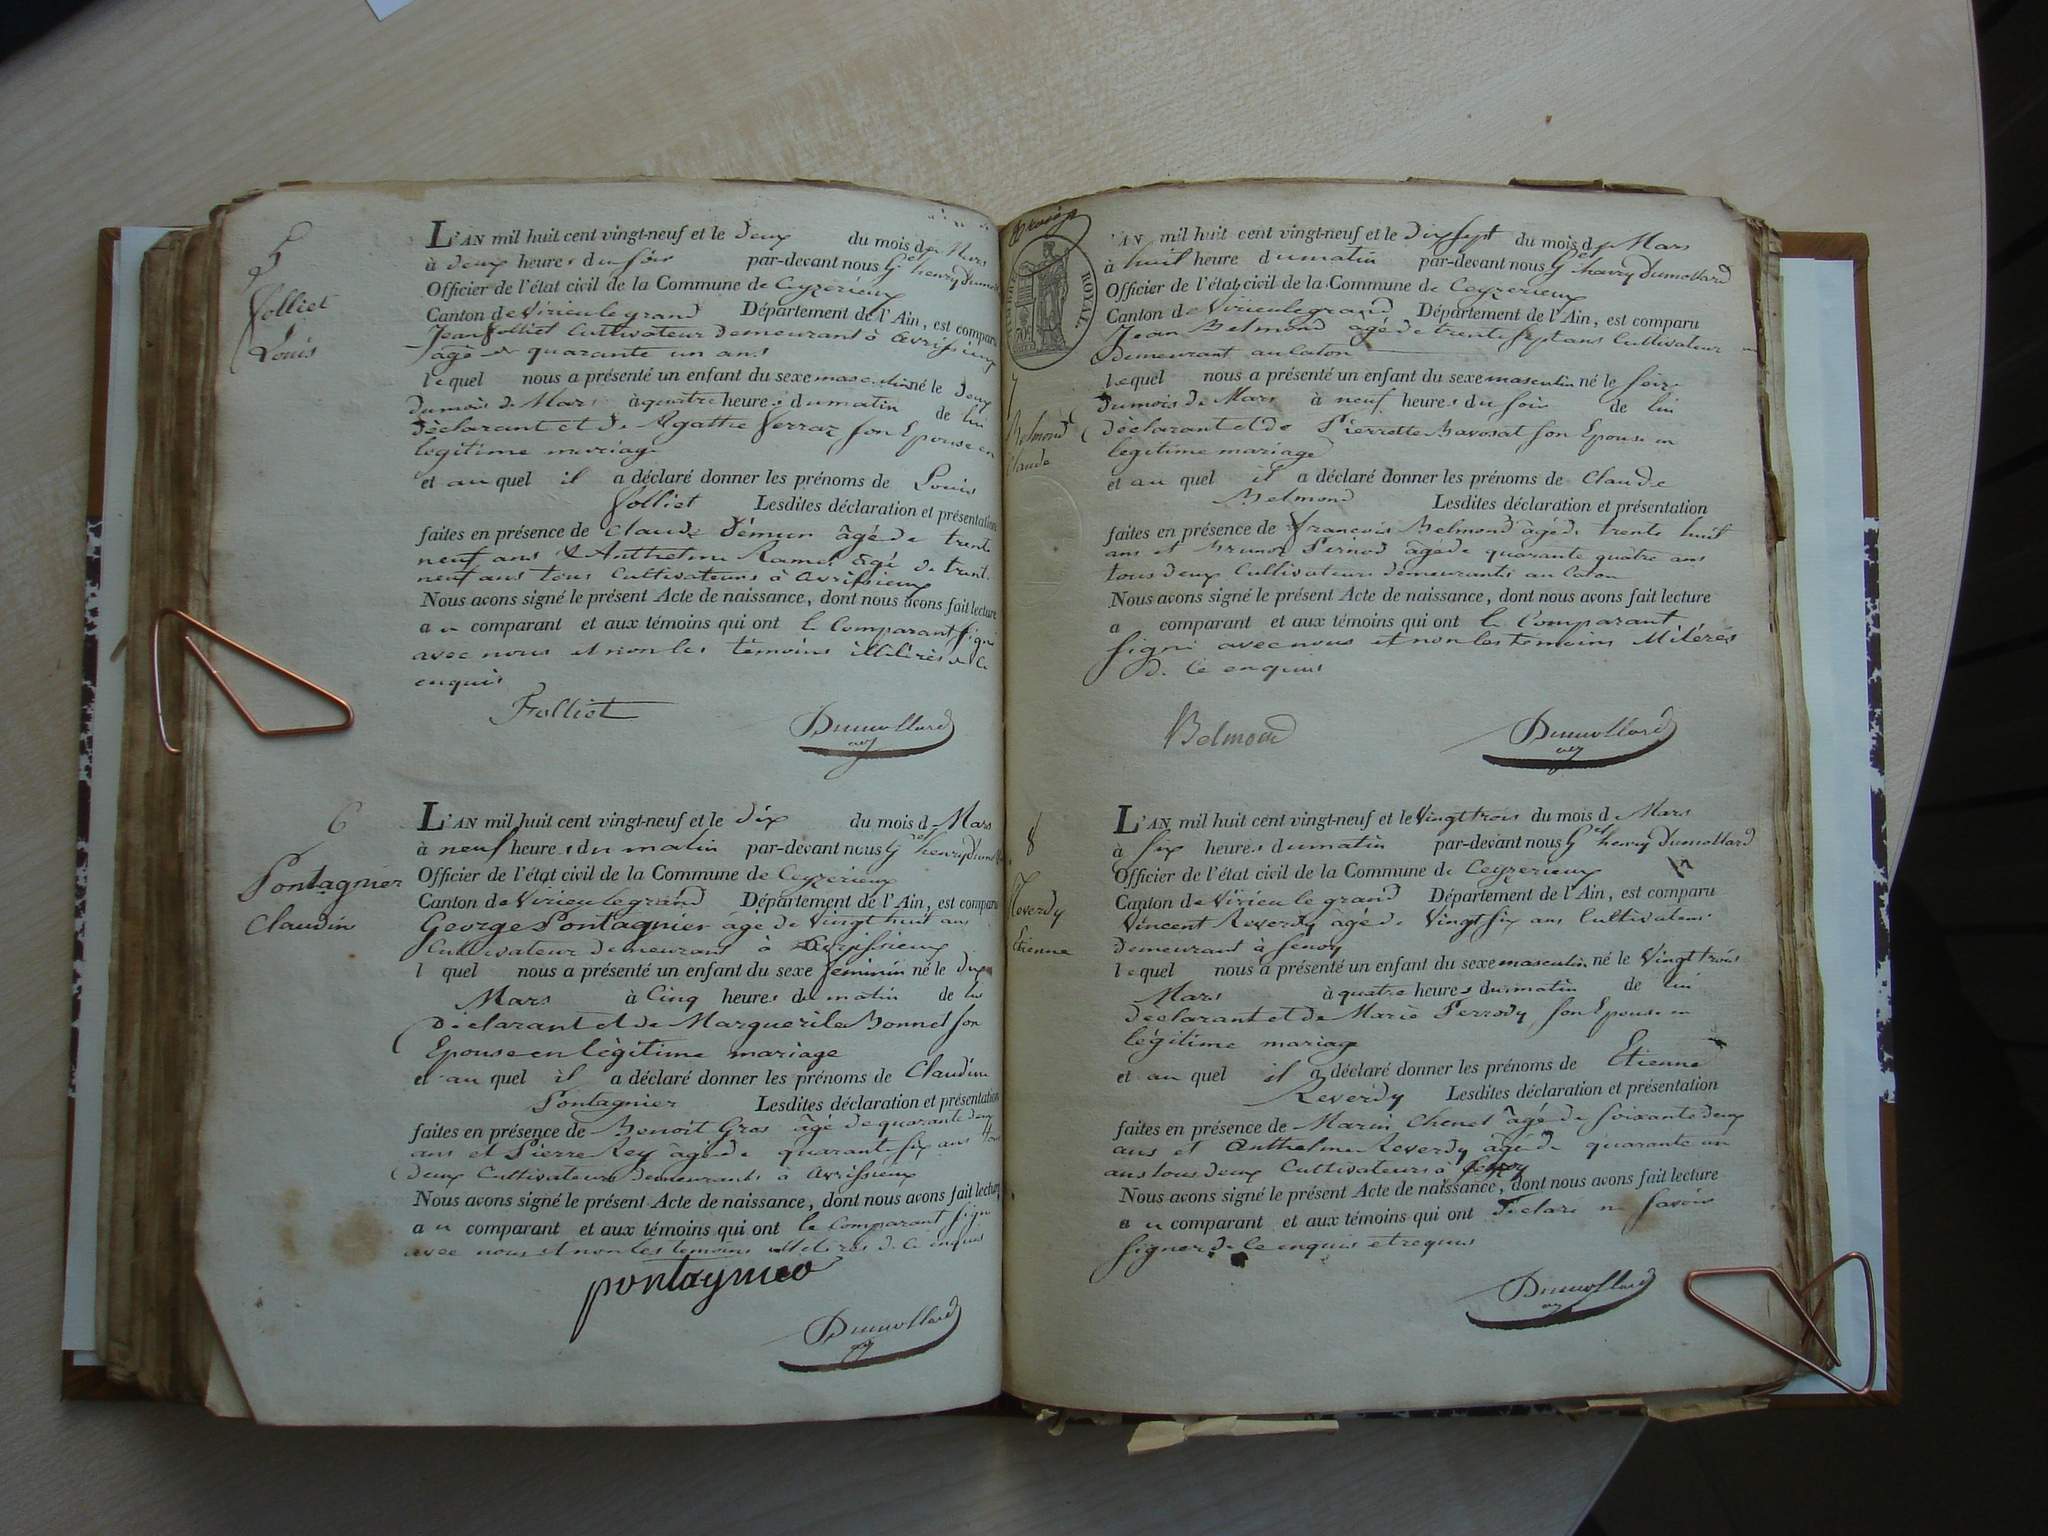 5
Folliet
Louis
L'AN mil huit cent vingt-neuf et le deux du mois de Mars
à deux heures du soir par-devant nous Gel henry Dumo
Officier de l'état civil de la Commune de Ceyzerieux
Canton de Virieu le grand Département de l'Ain, est comparu
Jean Folliet Cultivateur demeurant à avrissieux
âgé de quarante un ans
lequel nous a présenté un enfant du sexe masculin né le deux
du mois de Mars à quatre heures du matin de lui
déclarant et de Agathe Ferraz son Epouse en
legitime mariage
et au quel il a déclaré donner les prénoms de Louis
Folliet Lesdites déclaration et présentation
faites en présence de Claude Démur âgé de trente
neuf ans & Anthelme Ramel âgé de trente
neuf ans tous Cultivateurs à avrissieux
Nous avons signé le présent Acte de naissance, dont nous avons fait lecture
au comparant et aux témoins qui ont le Comparant signé
avec nous et non les témoins illitérés de ce
enquis
Folliet
Dumollard
6
Pontagnier
Claudine
L'AN mil huit cent vingt-neuf et le dix du mois de Mars
à neuf heures du matin par-devant nous Gel henry Dumo
Officier de l'état civil de la Commune de Ceyzerieux
Canton de Virieu le grand Département de l'Ain, est comparu
George Pontagnier âgé de Vingt huit ans
Cultivateur demeurant à avrissieux
l quel nous a présenté un enfant du sexe feminin né le dix
Mars à Cinq heures du matin de lui
Déclarant et de Marguerite Bonnet son
Epouse en légitime mariage
et au quel il a déclaré donner les prénoms de Claudine
Pontagnier Lesdites déclaration et présentation
faites en présence de Benoit Gros âgé de quarante deux
ans et Pierre Rey âgé de quarante six ans tous
deux Cultivateurs demeurants à avrissieux
Nous avons signé le présent Acte de naissance, dont nous avons fait lecture
au comparant et aux témoins qui ont le Comparant signé
avec nous et non les temoins illitérés de ce enquis
pontagnier
Dumollard
TIMBRE ROYAL
7
Belmond
Claude
'AN mil huit cent vingt-neuf et le dix sept du mois de Mars
à huit heure du matin par-devant nous Gel henry Dumollard
Officier de l'état civil de la Commune de Ceyzerieux
Canton de Virieu le grand Département de l'Ain, est comparu
Jean Belmond âgé de trente sept ans Cultivateur
demeurant au Caton
lequel nous a présenté un enfant du sexe masculin né le seize
du mois de Mars à neuf heures du soir de lui
déclarant et de Pierrette Bavosat son Epouse en
legitime mariage
et au quel il a déclaré donner les prénoms de Claude
Belmond Lesdites déclaration et présentation
faites en présence de françois Belmond âgé de trente huit
ans et Brunod Pernod âgé de quarante quatre ans
tous deux Cultivateurs demeurants au Caton
Nous avons signé le présent Acte de naissance, dont nous avons fait lecture
a comparant et aux témoins qui ont le Comparant
signé avec nous et non les temoins illitérés
de ce enquis
Belmond
Dumollard
8
Reverdy
Etienne
L'AN mil huit cent vingt-neuf et le Vingt trois du mois d Mars
à six heures du matin par-devant nous Gel henry Dumollard
Officier de l'état civil de la Commune de Ceyzerieux
Canton de Virieu le grand Département de l'Ain, est comparu
Vincent Reverdy âgé de Vingt six ans Cultivateur
demeurant à senoy
lequel nous a présenté un enfant du sexe masculin né le Vingt trois
Mars à quatre heures du matin de lui
déclarant et de Marie Perrody son Epouse en
légitime mariage
et au quel il a déclaré donner les prénoms de Etienne
Reverdy Lesdites déclaration et présentation
faites en présence de Marin Chenet âgé de soixante deux
ans et Anthelme Reverdy âgé de quarante un
ans tous deux Cultivateurs à senoy
Nous avons signé le présent Acte de naissance, dont nous avons fait lecture
au comparant et aux témoins qui ont déclaré ne savoir
signer de ce enquis et requis
Dumollard